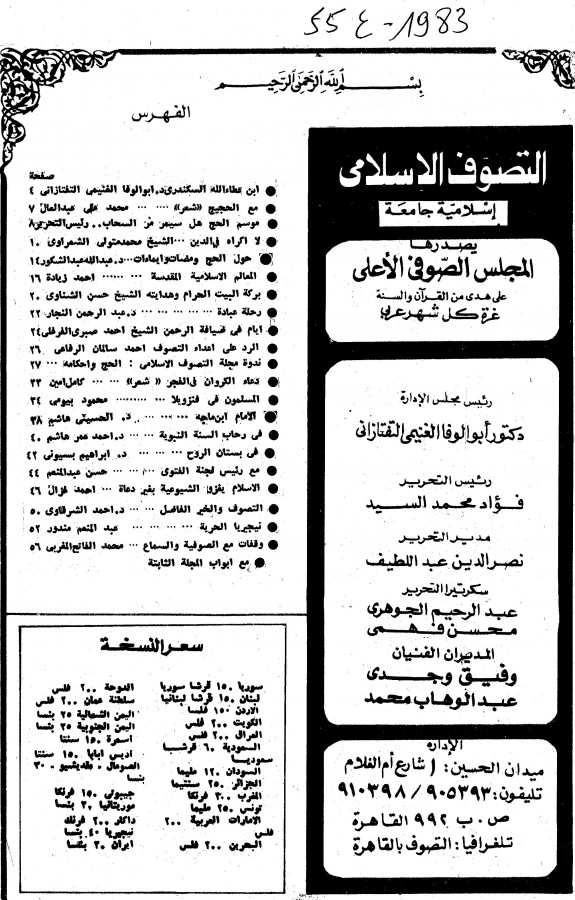 55 ع - 1983
بسم الله الرحمن الرحيم
الفهرس
التصوف الإسلامى
إسلامية جامعة
يصدرها
المجلس الصوفى الأعلى
على هدى من القرآن والسنة
غرة كل شهر عربى
رئيس مجلس الإدارة
دكتور أبو الوفا الغنيمى التفتازانى
رئيس التحرير
فؤاد محمد السيد
مدير التحرير
نصر الدين عبد اللطيف
سكرتيرا التحرير
عبد الرحيم الجوهرى
محسن فهمى
المديران الفنيان
وفيق وجدى
عبد الوهاب محمد
الإدارة
ميدان الحسين: ١ شارع أم الغلام
تليفون: ٩٠٥٣٩٣ / ٩١٠٣٩٨
ص . ب ٩٩٢ القاهرة
تلغرافيا: التصوف بالقاهرة
صفحة
ابن عطاء الله السكندرى د. ابو الوفا الغنيمى التفتازانى ٤
مع الحجيج «شعر» ... ... محمد على عبد العال ٧
موسم الحج هل سيمر مر السحاب .. رئيس التحرير ٨
لا اكراه فى الدين ... الشيخ محمد متولى الشعراوى ١٠
حول الحج ومضات وايماءات ... د. عبد الله عبد الشكور ١٤
المعالم الاسلامية المقدسة ... ... احمد زيادة ١٦
بركة البيت الحرام وهدايته الشيخ حسن الشناوى ٢٠
رحلة عبادة ... ... ... د. عبد الرحمن النجار ٢٢
ايام فى ضيافة الرحمن الشيخ احمد صبرى الفرغلى ٢٤
الرد على اعداء التصوف احمد سالمان الرفاعى ٢٦
ندوة مجلة التصوف الاسلامى : الحج واحكامه ... ٢٧
دعاء الكروان فى الفجر « شعر » ... كامل امين ٣٣
المسلمون فى فنزويلا ... ... محمود بيومى ٣٤
الامام ابن ماجه ... ... ... د. الحسينى هاشم ٣٨
فى رحاب السنة النبوية ... د. احمد عمر هاشم ٤٠
فى بستان الروح ... ... د. ابراهيم بسيونى ٤٢
مع رئيس لجنة الفتوى ... ... حسن عبد المنعم ٤٤
الاسلام يغزو الشيوعية بغير دعاة ... احمد غزال ٤٦
التصوف والخير الفاضل ... د. احمد الشرقاوى ٥٠
نيجيريا الحرية ... ... ... عبد المنعم مندور ٥٢
وقفات مع الصوفية والسماع ... محمد الفاتح المغربى ٥٦
مع ابواب المجلة الثابتة
سعر النسخة
سوريا ١٥٠ قرشا سوريا
لبنان ١٥٠ قرشا لبنانيا
الاردن ١٥٠ فلسا
الكويت ٢٠٠ فلس
العراق ٢٠٠ فلس
السعودية ٦٠ قرشا
سعوديا
السودان ١٢٠ مليما
الجزائر ٢٥٠ سنتيما
المغرب ٣٠٠ فرنكا
تونس ٢٥٠ مليما
الامارات العربية ٢٠٠
فلس
البحرين ٢٠٠ فلس
الدوحة ٢٠٠ فلس
سلطنة عمان ٢٠٠ فلس
اليمن الشمالية ٢٥ بنسا
اليمن الجنوبية ٢٥ بنسا
اسمرة ١٥٠ سنتا
اديس ابابا ١٥٠ سنتا
الصومال - مقديشيو ٣٠
بنسا
جيبوتى ١٥٠ فرنكا
موريتانيا ٣٠ بنسا
داكار ٢٠٠ فرنك
نيجيريا ٤٠ بنسا
ايران ٣٠ بنسا